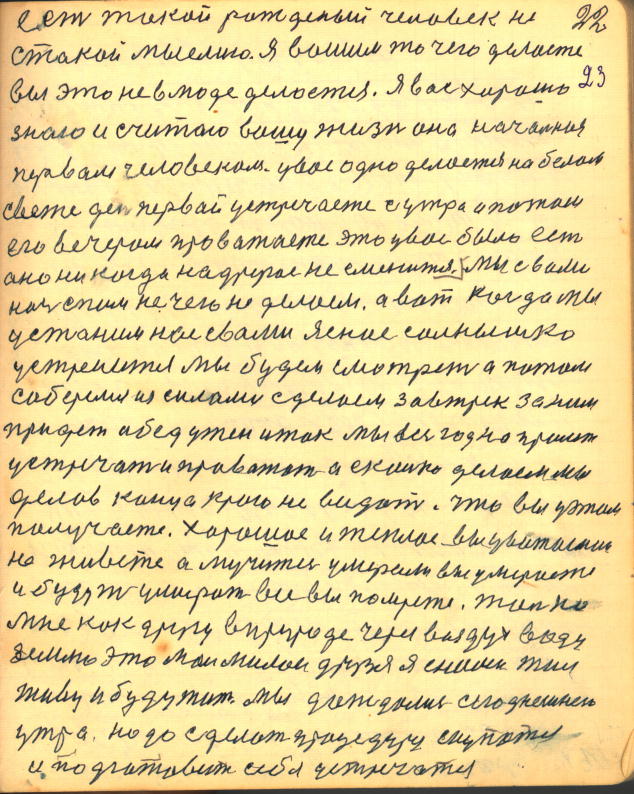 ест такой рожденый человек не 22
стакой мыслию. Я вашим то чего делаете
вы это не в моде делается. Я вас хорошо 23
знаю и считаю вашу жизн она началная
первам человеком. увас одно делается на белом
свете ден первай устречаете сутра а потом
его вечером проватаете это увас было ест
ано никогда надругое не сменится. Мы свами
нач спим не чего не делаем. а вот когда мы
устаним нас свами ясное солнышко
устренится мы будем смотрет а потом
саберемся силами сделаем завтрек заним
придет абед ужен итак мы все годно
устречат и проватат а сколко делаем мы
делов конца краю не видат. Что вы уэтом
получаете. Хорошое и теплое вы
не живете а мучитес умерали вы умераете
и будут умират все вы помрете. толко
мне как другу в природе через воздух воду
землю это маи милаи друзя я сними жил
живу и буду жит. мы дождалис сегоднешнего
утра. надо сделат процедуру скупатся
и подготовит себя устречатся